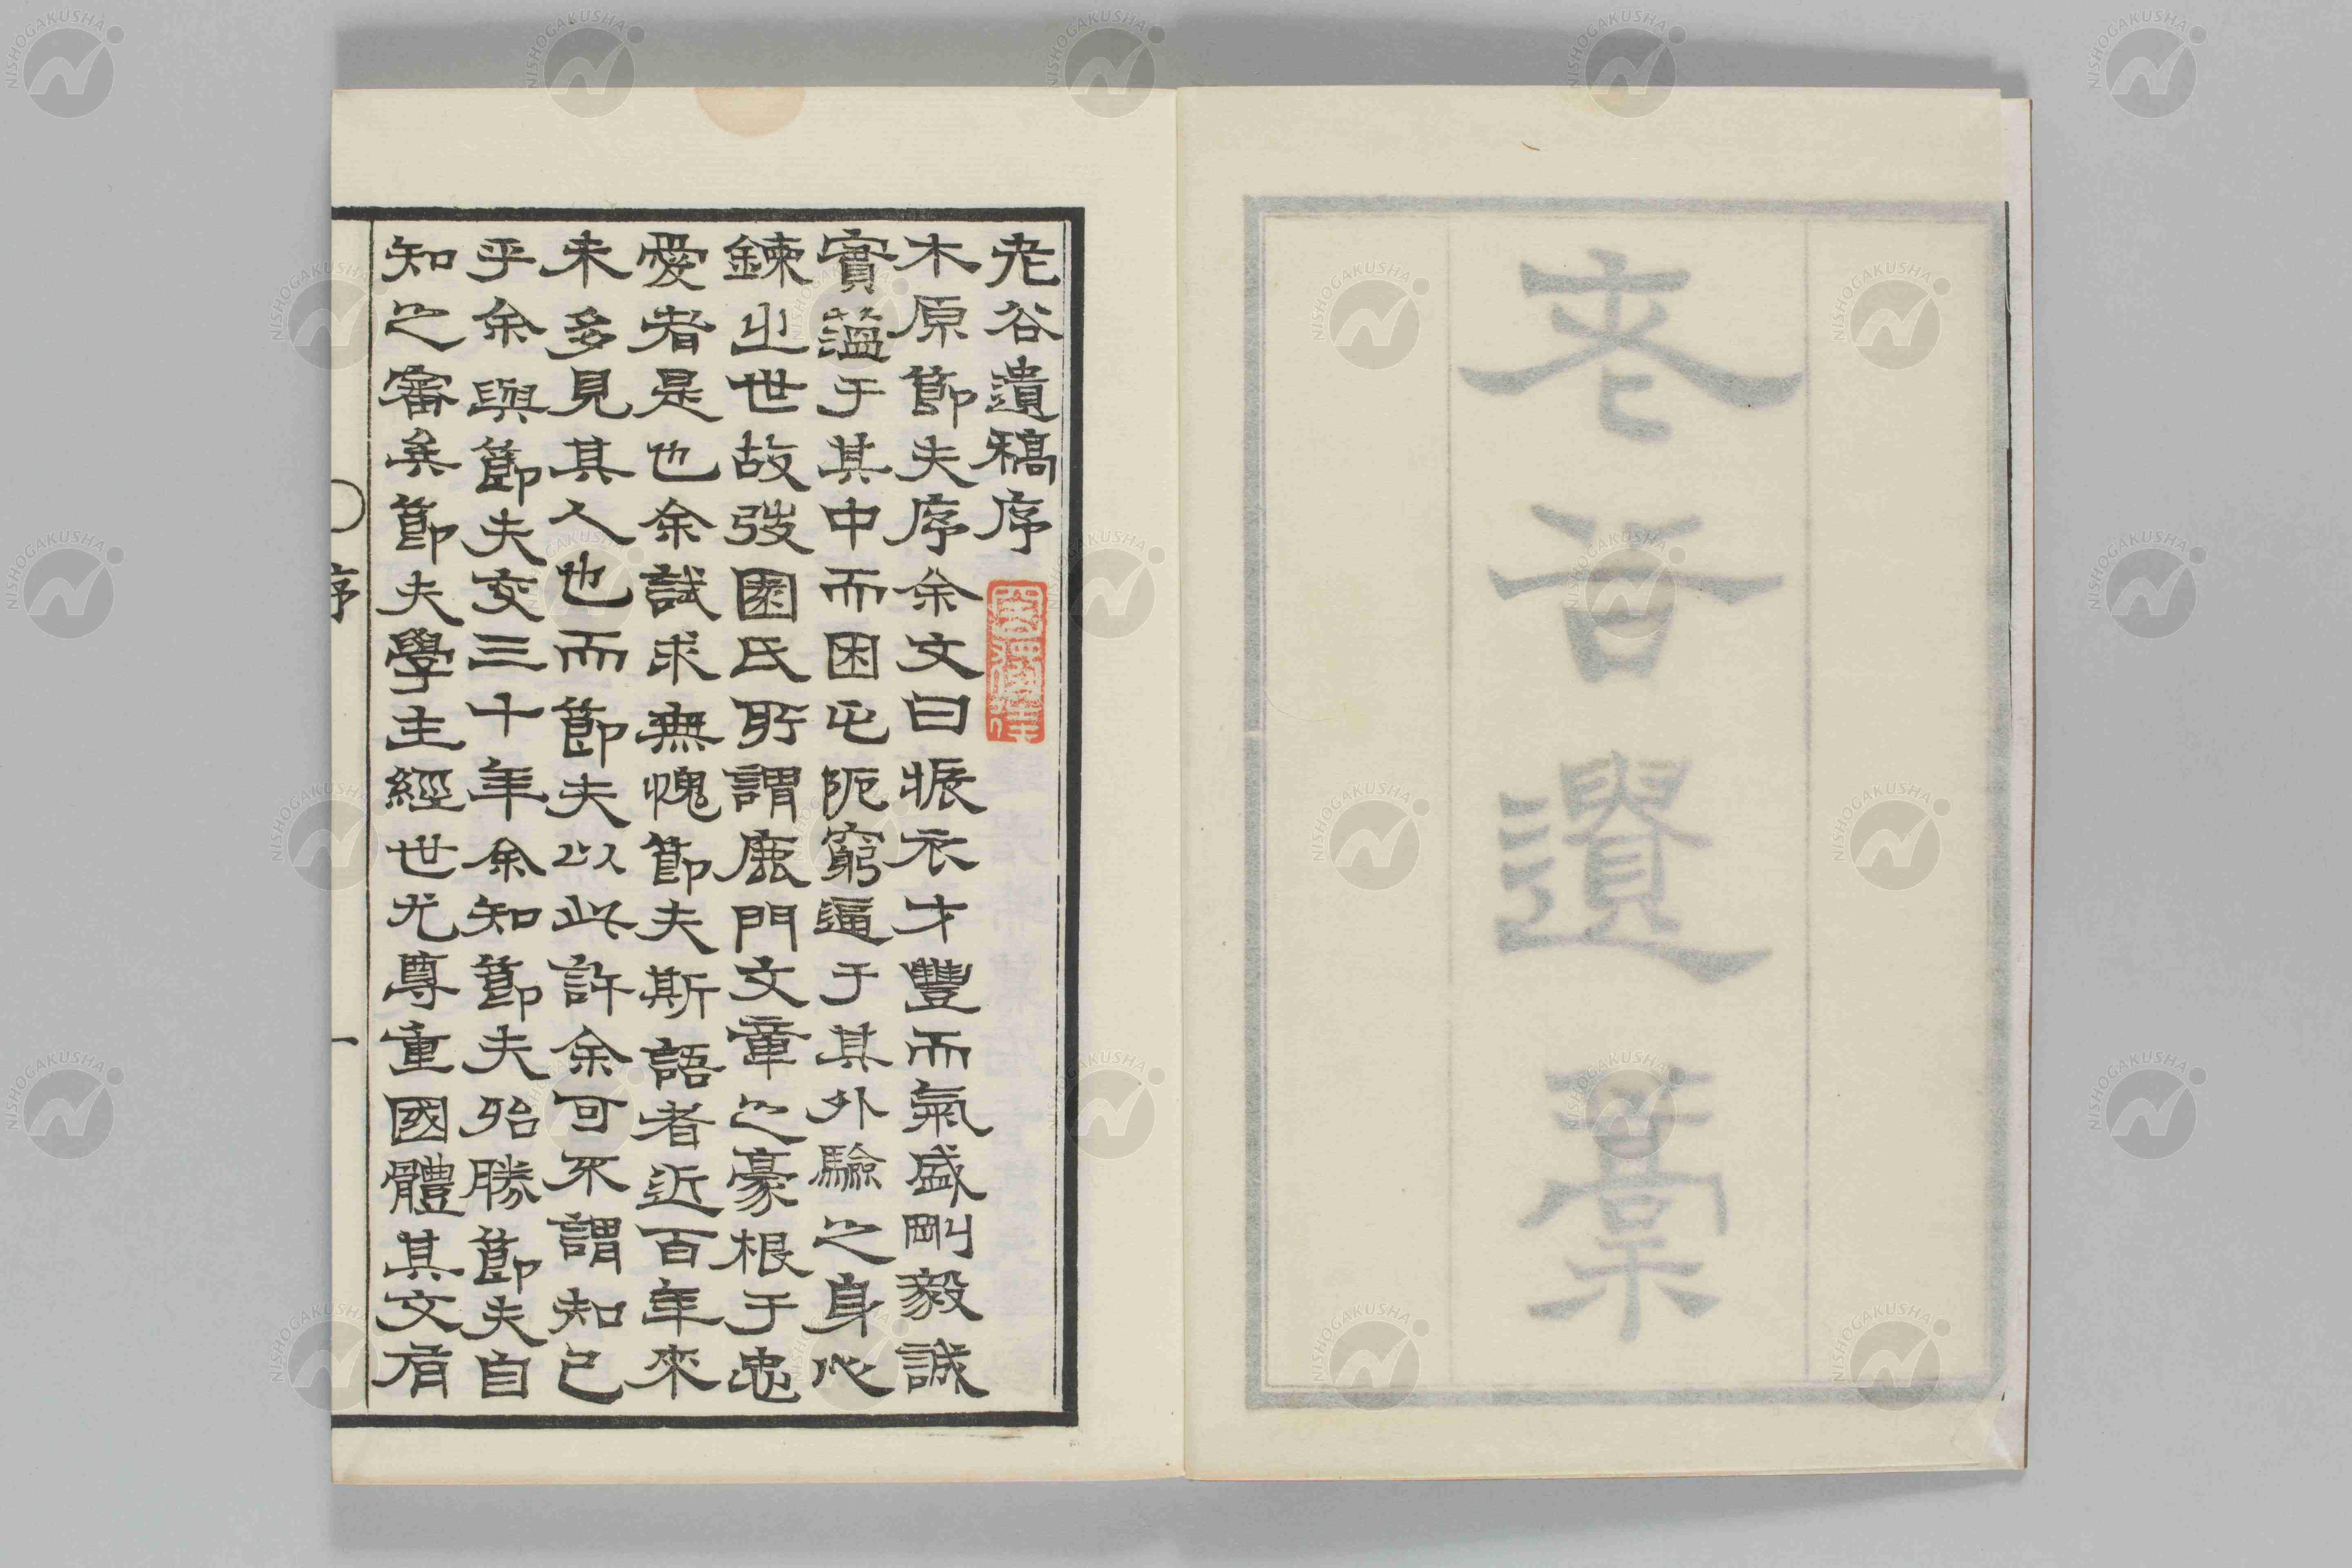 老谷遺稾
老谷遺稿序
木原節夫序余文曰振衣才豐而氣盛剛毅誠
實蘊于其中而困屯阨窮逼于其外驗之身心
鍊之世故弢園氏所謂鹿門文章之豪根于忠
愛者是也余試求無愧節夫斯語者近百年來
未多見其人也而節夫以此許余可不謂知己
乎余與節夫交三十年余知節夫殆勝節夫自
知之審矣節夫學主經世尤尊重國體其文有
序 一
NISHOGAKUSHA